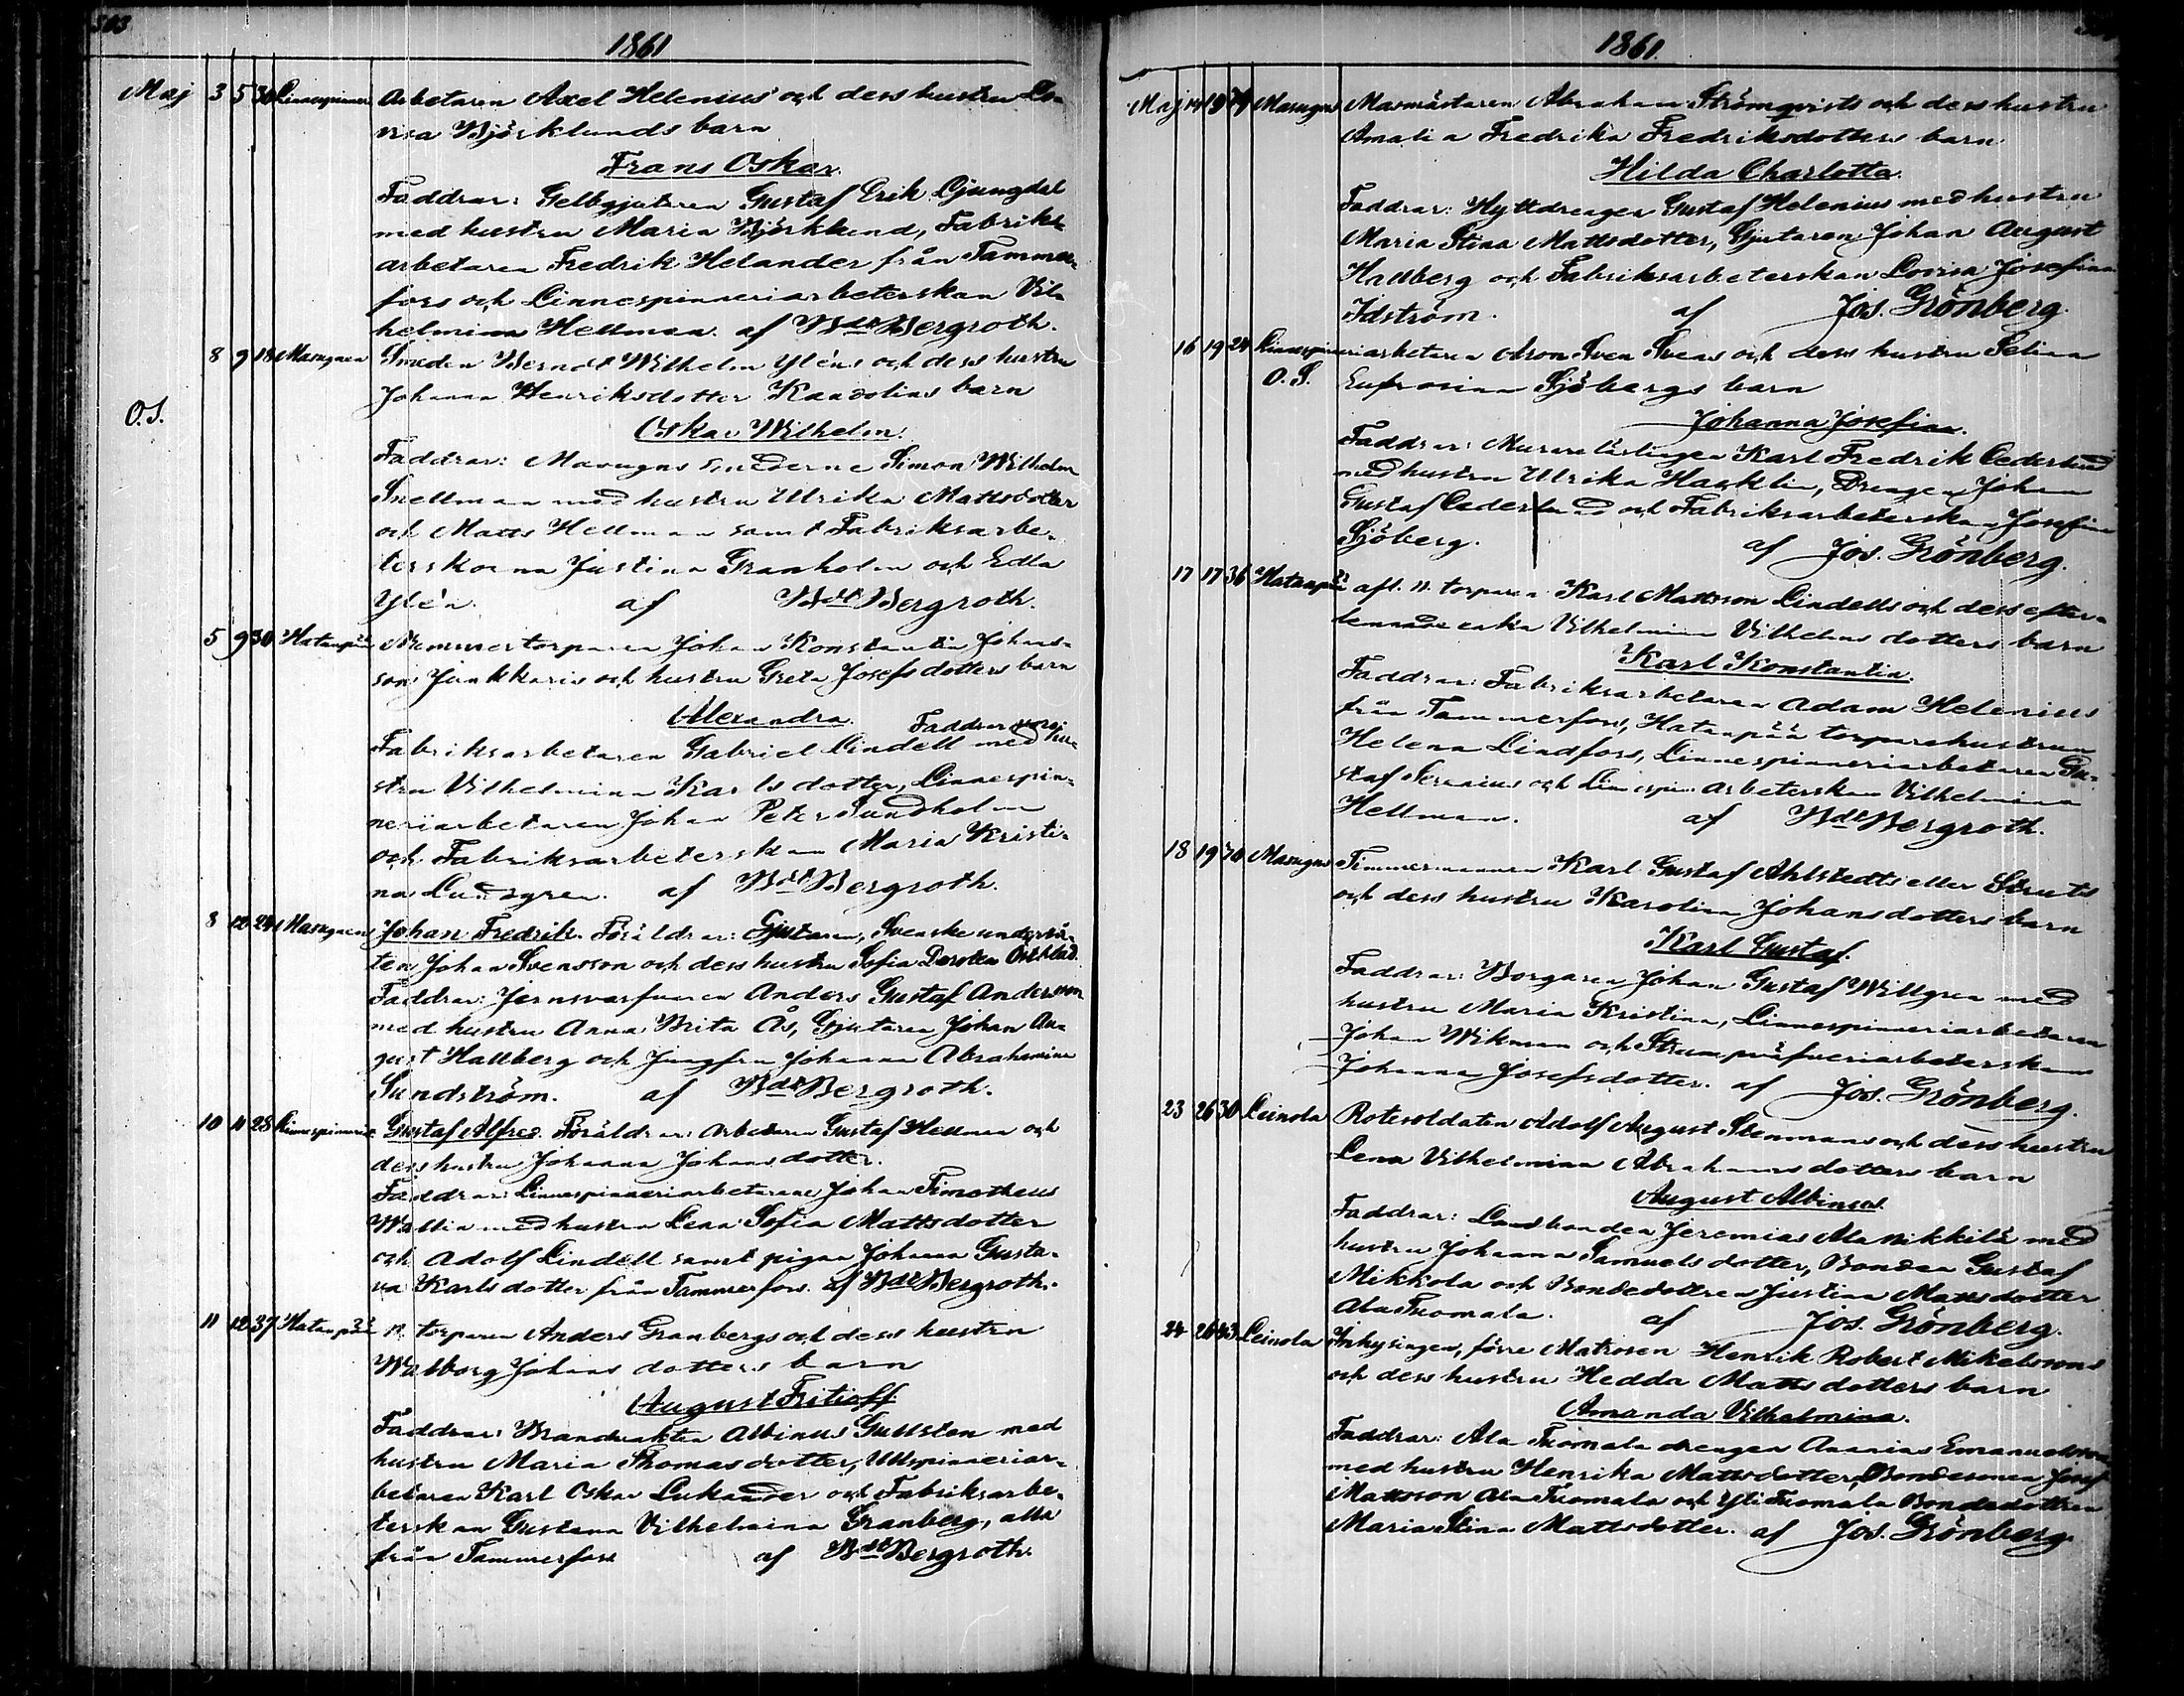 303
1861
Maj 3 5 30 Linnespinner. Arbetaren Axel Helenius och dess hustru Lo-
visa Björklunds barn
Frans Oskar.
Faddrar: Gelbgjutaren Gustaf Erik Ljungdal
med hustru Maria Björklund, Fabriks-
arbetaren Fredrik Helander från Tammer-
fors och Linnespinneriarbeterskan Vil-
helmina Hellman. af Bdt Bergroth.
8 9 18 Masugnen Smeden Berndt Wilhelm Yléns och dess hustru
Johanna Henriksdotter Kandolins barn
O.S.
Oskar Wilhelm.
Faddrar: Masugns smederne Simon Wilhelm
Snellman med hustru Ulrika Mattsdotter
och Matts Hellman samt Fabriksarbe-
terskorna Justina Granholm och Edla
Ylén. af Bdt Bergroth.
5 9 30 Hatanpää Nummertorparen Johan Konstantin Johans-
son Junkkaris och hustru Greta Josefsdotters barn
Alexandra. Faddrar voro:
Fabriksarbetaren Gabriel Lindell med hu-
stru Vilhelmina Karlsdotter, Linnespin-
neriarbetaren Johan Peter Sundholm
och Fabriksarbeterskan Maria Kristi-
na Lundgren. af Bdt Bergroth.
8 12 24 Masugnen Johan Fredrik. Föräldrar: Gjutaren, Svenske underså-
ten Johan Svensson och dess hustru Sofia Dorotea Östblad.
Faddrar: Jernsvarfvaren Anders Gustaf Andersson
med hustru Anna Brita Ås, Gjutaren Johan Au-
gust Hallberg och Jungfru Johanna Abrahamina
Sundström. af Bdt Bergroth.
10 11 28 Linnespinneriet Gustaf Alfred. Föräldrar: Arbetaren Gustaf Hellman och
dess hustru Johanna Johansdotter.
Faddrar: Linnespinneriarbetarene Johan Timotheus
Wallin med hustru Lena Sofia Mattsdotter
och Adolf Lindell samt pigan Johanna Gusta-
va Karlsdotter från Tammerfors. af Bdt Bergroth.
11 12 37 Hatanpää N. torparen Anders Granbergs och dess hustru
Walborg Johansdotters barn
August Fritioff
Faddrar: Brandvakten Albinus Gullsten med
hustru Maria Thomasdotter, Ullspinneriar-
betaren Karl Oskar Lukander och Fabriksarbe-
terskan Gustava Vilhelmina Granberg, alla
från Tammerfors af Bdt Bergroth.
1861.
Maj 14 19 Masugns Masmästaren Abraham Strömqvists och dess hustru
Amalia Fredrika Fredriksdotters barn
Hilda Charlotta.
Faddrar: Hyttdrengen Gustaf Helenius med hustru
Maria Stina Mattsdotter, Gjutaren Johan August
Hallberg och Fabriksarbeterskan Lovisa Josefina
Idström. af Jos. Grönberg.
16 19 24 Linnespinneriarbetaren Aron Sven Svens och dess hustru Selina
O.S. Eufrosina Sjöbergs barn
Johanna Josefina.
Faddrar: Murarelärlingen Karl Fredrik Cederlund
med hustru Ulrika Hacklin, Drengen Johan
Gustaf Cederlund och Fabriksarbeterskan Josefina
Sjöberg. af Jos. Grönberg.
17 17 36 Hatanpää afl. N. torparen Karl Mattsson Lindells och dess efter-
lemnade enka Vilhelmina Vilhelmsdotters barn
Karl Konstantin.
Faddrar: Fabriksarbetaren Adam Helenius
från Tammerfors, Hatanpää torparehustrun
Helena Lindfors, Linnespinneriarbetaren Gu-
staf Serenius och Linnespin. arbeterskan Vilhelmina
Hellman. af Bdt Bergroth.
18 19 30 Masugns Timmermannen Karl Gustaf Ahlstedts eller Struts
och dess hustru Karolina Johansdotters barn
Karl Gustaf.
Faddrar: Borgaren Johan Gustaf Willgren med
hustru Maria Kristina, Linnespinneriarbetaren
Johan Wikman och Strumpväfveriarbeterskan
Johanna Josefsdotter. af Jos. Grönberg.
23 26 30 Leinola Rotesoldaten Adolf August Stenmans och dess hustru
Lena Vilhelmina Abrahamsdotters barn
August Albinus.
Faddrar: Landbonden Jeremias Ala Nikkilä med
hustru Johanna Samuelsdotter, Bonden Gustaf
Mikkola och Bondedottren Justina Mattsdotter
Ala Tuomala. af Jos. Grönberg.
24 26 43 Leinola Inhysingen, förre Matrosen Henrik Robert Mikelssons
och dess hustru Hedda Mattsdotters barn
Amanda Vilhelmina.
Faddrar: Ala Tuomala drengen Ananias Emanuelsson
med hustru Henrika Mattsdotter, Bondesonen Josef
Mattsson Ala Tuomala och Yli Tuomala Bondedottren
Maria Stina Mattsdotter. af Jos. Grönberg.